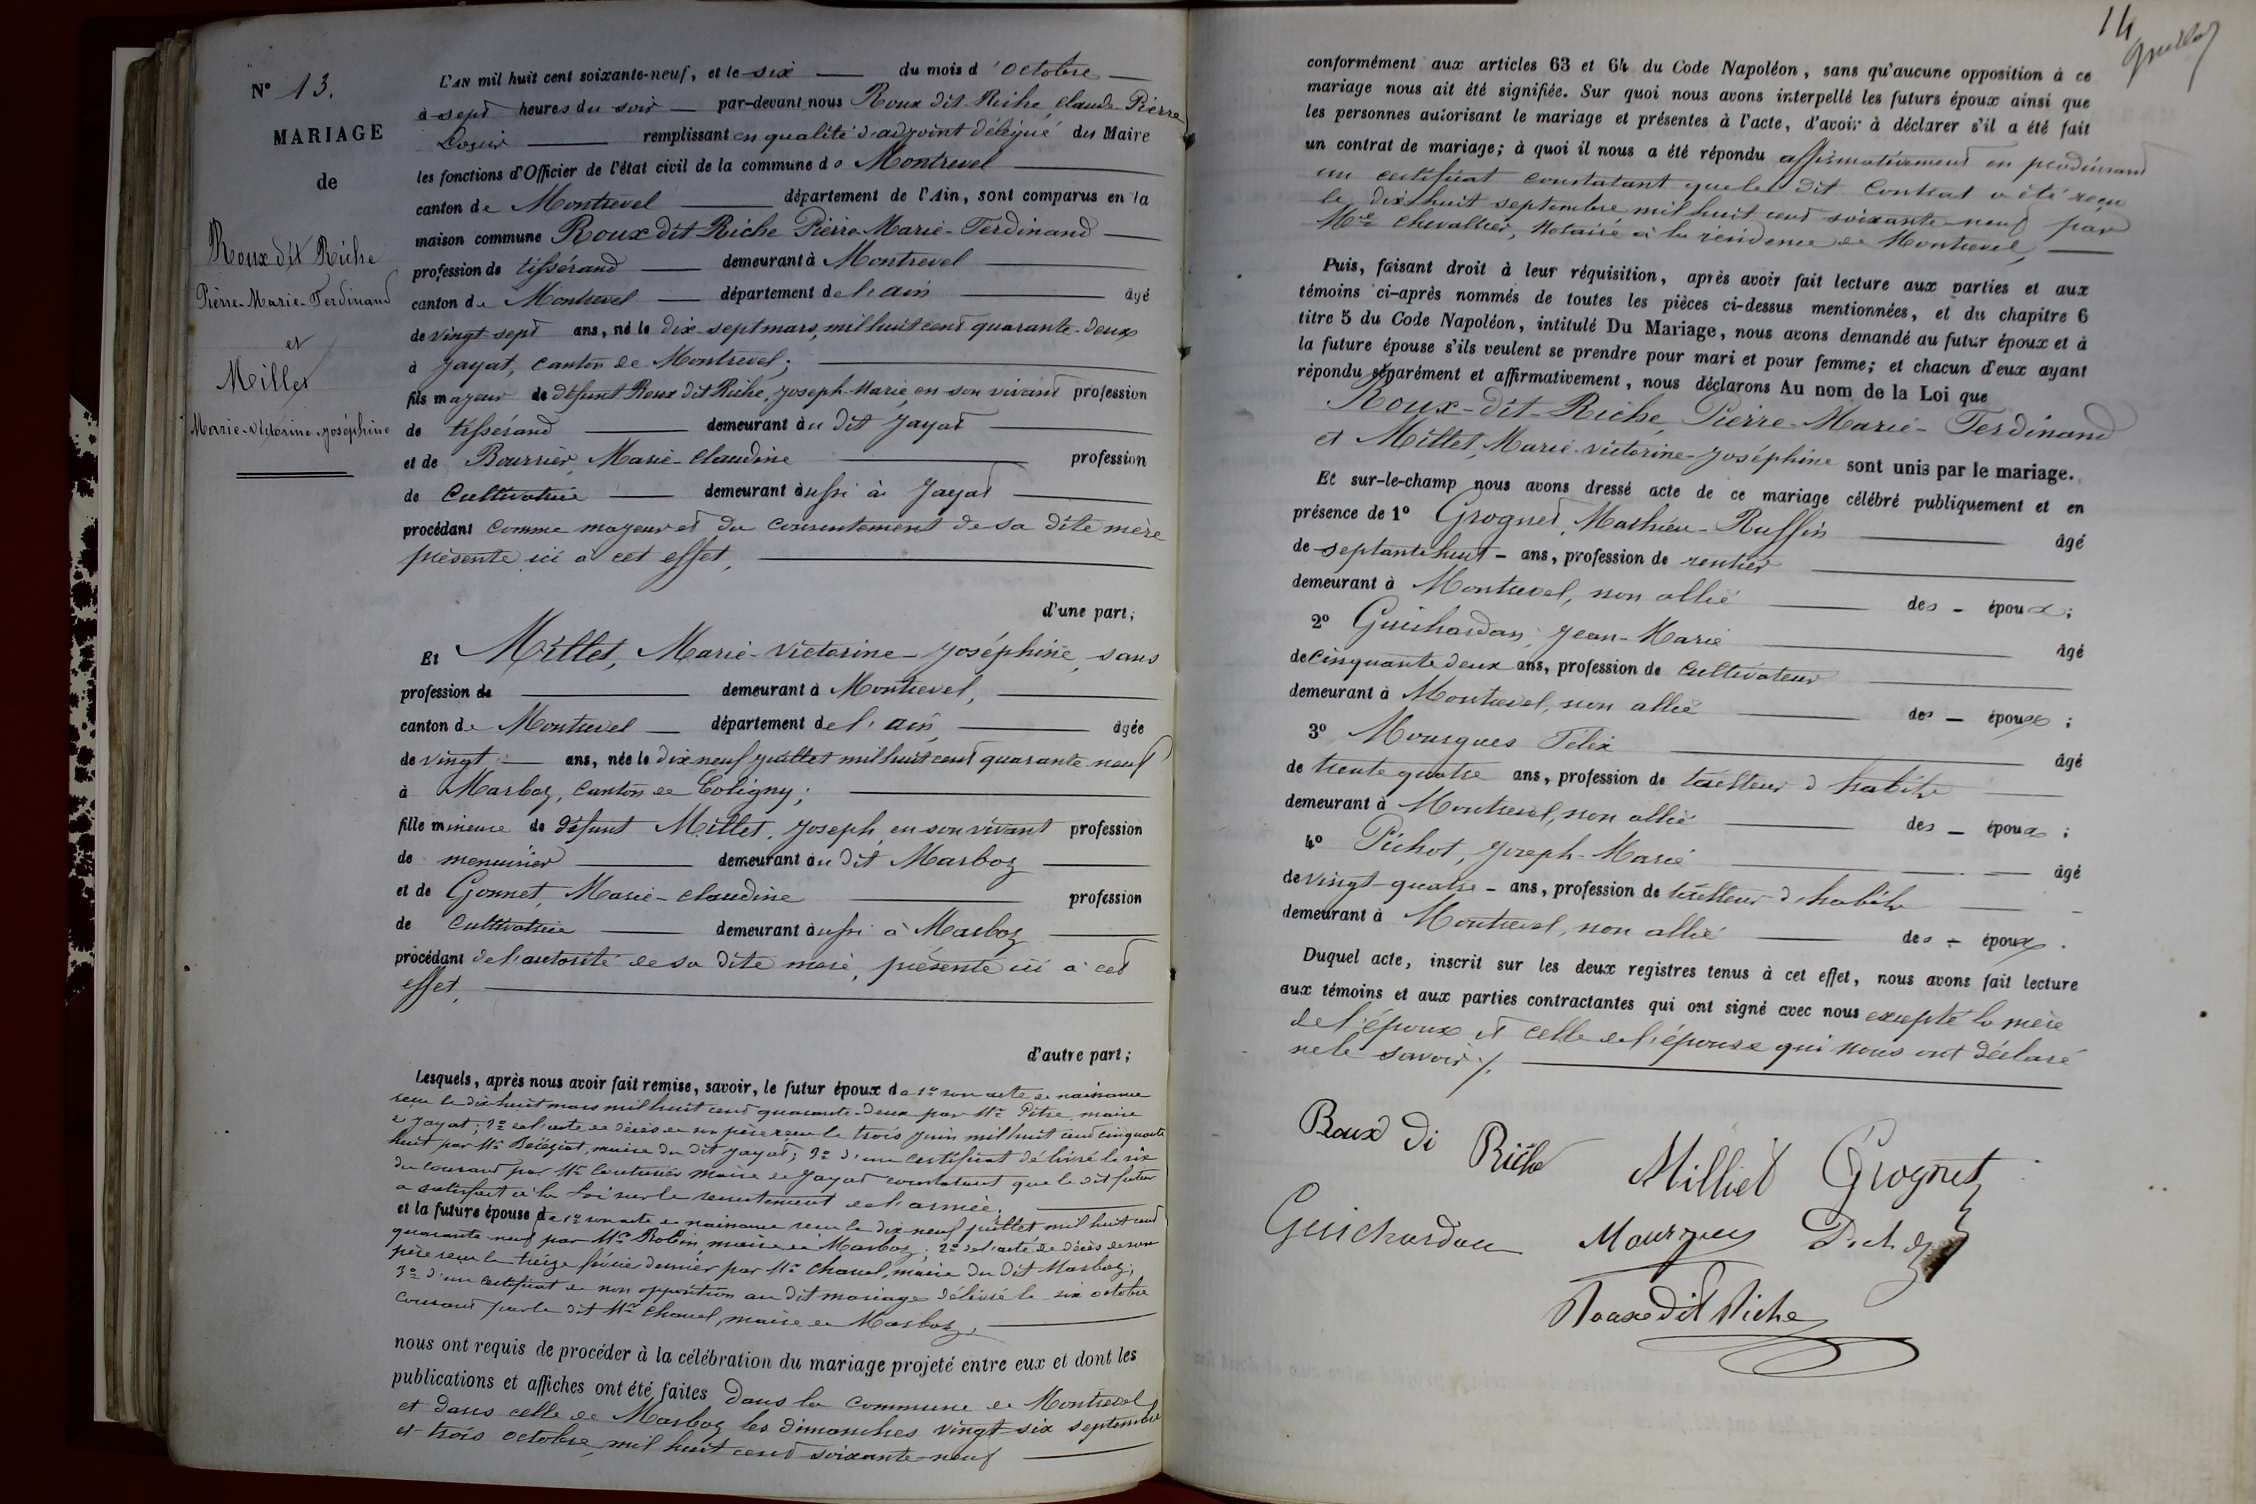 N° 13.
MARIAGE
de
Roux dit Riche
Pierre-Marie-Ferdinand
et
Millet
Marie-victorine-joséphine
L'AN mil huit cent soixante-neuf, et le six du mois d'octobre
à sept heures du soir par-devant nous Roux dit Riche, claude Pierre
remplissant en qualité d'adjoint délégué du Maire
les fonctions d'Officier de l'état civil de la commune de Montrevel
canton de Montrevel département de l'Ain, sont comparus en la
maison commune Roux dit Riche Pierre-Marie-Ferdinand
profession de tisserand demeurant à Montrevel
canton de Montrevel département de l'ain âgé
de vingt-sept ans, né le dix-sept mars, mil huit cent quarante-deux
à Jayat, canton de Montrevel;
fils majeur de défunt Roux dit Riche, joseph-Marie, en son vivant profession
de tisserand demeurant au dit Jayat
et de Bourrier, Marie-claudine profession
de cultivatrice demeurant aussi à Jayat
procédant comme majeur et du consentement de sa dite mère
présente ici à cet effet,
d'une part;
Et Millet, Marie-victorine-joséphine, sans
profession de demeurant à Montrevel,
canton de Montrevel département de l'ain âgée
de vingt ans, née le dix-neuf juillet mil huit cent quarante neuf
à Marboz, canton de Coligny;
fille mineure de défunt Millet, Joseph, en son vivant profession
de menuisier demeurant au dit Marboz
et de Gonnet, Marie-claudine profession
de cultivatrice demeurant aussi à Marboz
procédant de l'autorité de sa dite mère, présente ici à cet
effet,
d'autre part;
Lesquels, après nous avoir fait remise, savoir, le futur époux de 1° son acte de naissance
reçu le dix-huit mars mil huit cent quarante-deux par Mr Pitre, maire
de Jayat; 2° de l'acte de décès de son père reçu le trois juin mil huit cent cinquante
huit par Mr Beléziat, maire du dit Jayat; 3° d'un certificat délivré le six
du courant par Mr Couturier maire de Jayat constatant que le dit futur
a satisfait à la loi sur le recrutement de l'armée;
et la future épouse de 1° son acte de naissance reçu le dix-neuf juillet, mil huit cent
quarante-neuf par Mr Robin, maire de Marboz; 2° de l'acte de décès de son
père reçu le treize février dernier par Mr Chanel, maire du dit Marboz;
3° d'un certificat de non opposition au dit mariage délivré le six octobre
courant par le dit Mr Chanel, maire de Marboz,
nous ont requis de procéder à la célébration du mariage projeté entre eux et dont les
publications et affiches ont été faites dans la commune de Montrevel
et dans celle de Marboz les dimanches vingt-six septembre
et trois octobre, mil huit cent soixante-neuf
14
conformément aux articles 63 et 64 du Code Napoléon, sans qu'aucune opposition à ce
mariage nous ait été signifiée. Sur quoi nous avons interpellé les futurs époux ainsi que
les personnes autorisant le mariage et présentes à l'acte, d'avoir à déclarer s'il a été fait
un contrat de mariage; à quoi il nous a été répondu affirmativement en produisant
un certificat constatant que le dit contrat a été reçu
le dix huit septembre mil huit cent soixante neuf par
Me Chevallier, Notaire à la résidence de Montrevel,
Puis, faisant droit à leur réquisition, après avoir fait lecture aux parties et aux
témoins ci-après nommés de toutes les pièces ci-dessus mentionnées, et du chapitre 6
titre 5 du Code Napoléon, intitulé Du Mariage, nous avons demandé au futur époux et à
la future épouse s'ils veulent se prendre pour mari et pour femme; et chacun d'eux ayant
répondu séparément et affirmativement, nous déclarons Au nom de la Loi que
Roux-dit-Riche, Pierre-Marie-Ferdinand
et Millet, Marie-victorine-joséphine sont unis par le mariage.
Et sur-le-champ nous avons dressé acte de ce mariage célébré publiquement et en
présence de 1° Grognet, Mathieu-Ruffin âgé
de septante huit ans, profession de rentier
demeurant à Montrevel, non allié des époux;
2° Guichardan, Jean-Marie âgé
de cinquante deux ans, profession de cultivateur
demeurant à Montrevel, non allié des époux;
3° Mourgues Felix âgé
de trente quatre ans, profession de tailleur d'habits
demeurant à Montrevel, non allié des époux;
4° Pichot, Joseph-Marie âgé
de vingt-quatre ans, profession de tailleur d'habits
demeurant à Montrevel, non allié des époux.
Duquel acte, inscrit sur les deux registres tenus à cet effet, nous avons fait lecture
aux témoins et aux parties contractantes qui ont signé avec nous excepté la mère
de l'époux et celle de l'épouse qui nous ont déclaré
ne le savoir
Roux di Riche Milliet Grognet
Guichardan Mourgues
Roux dit Riche